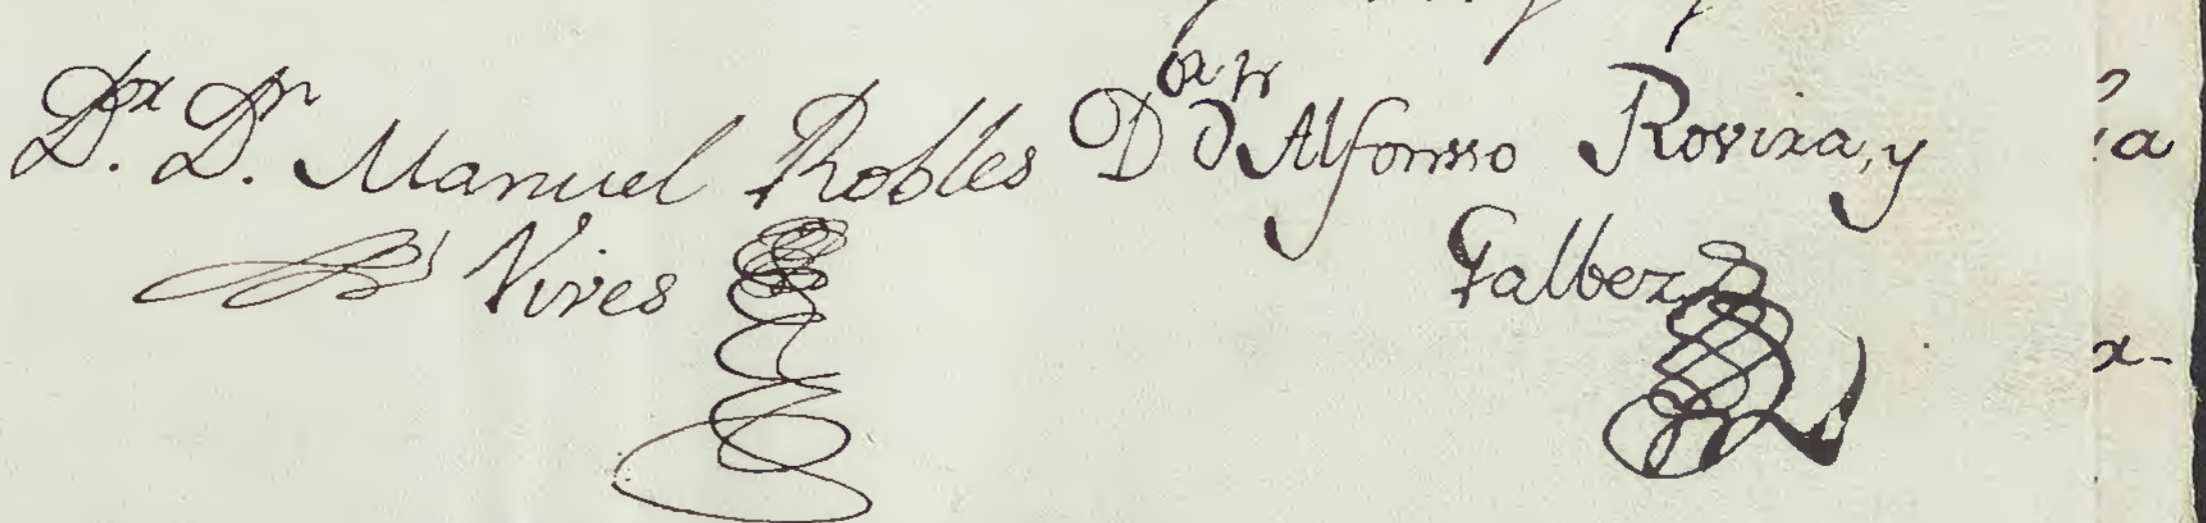 Dor. Dn. Manuel Robles
Vives
Dor dn Alfonsso Rovira, y
Galbez